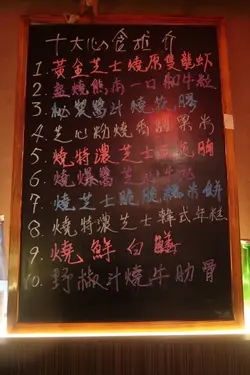 十大心食推介
1. 黃金芝士燒原隻龍蝦
2. 鹽燒熊本一口和牛粒
3. 秘製醬汁燒
4. 芝心粉燒香甜粟米
5. 燒特濃芝士
6. 燒爆醬芝心牛丸
7. 燒芝士脆脆糯米餅
8. 燒特濃芝士韓式年糕
9. 燒鮮白鱔
10. 野椒汁燒牛肋骨